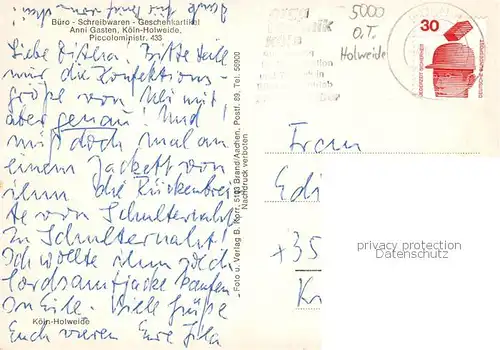 Danke für
Büro - Schreibwaren - Geschenkartikel
Anni Gasten, Köln-Holweide,
Piccoloministr. 433
Liebe Bitte teile
mir die Konfektions-
größe von mit
aber genau! Und!
miß doch mal an
einem Jackett von
ihm die Rückenbrei
te von Schulternaht
zu Schulternaht!
Ich wollte ihm
Cordsamtjacke kaufen
In Eile. Viele Grüße
Euch Eure
Köln-Holweide
Foto u. Verlag B. Korr, 5103 Brand/Aachen, Postf. 89, Tel. 56900
Nachdruck verboten
5000
O.T.
Holweide
30
JEDERZEIT SICHERHEIT
DEUTSCHE BUNDESPOST
Frau
Edi
+35
K
privacy protection
Datenschutz